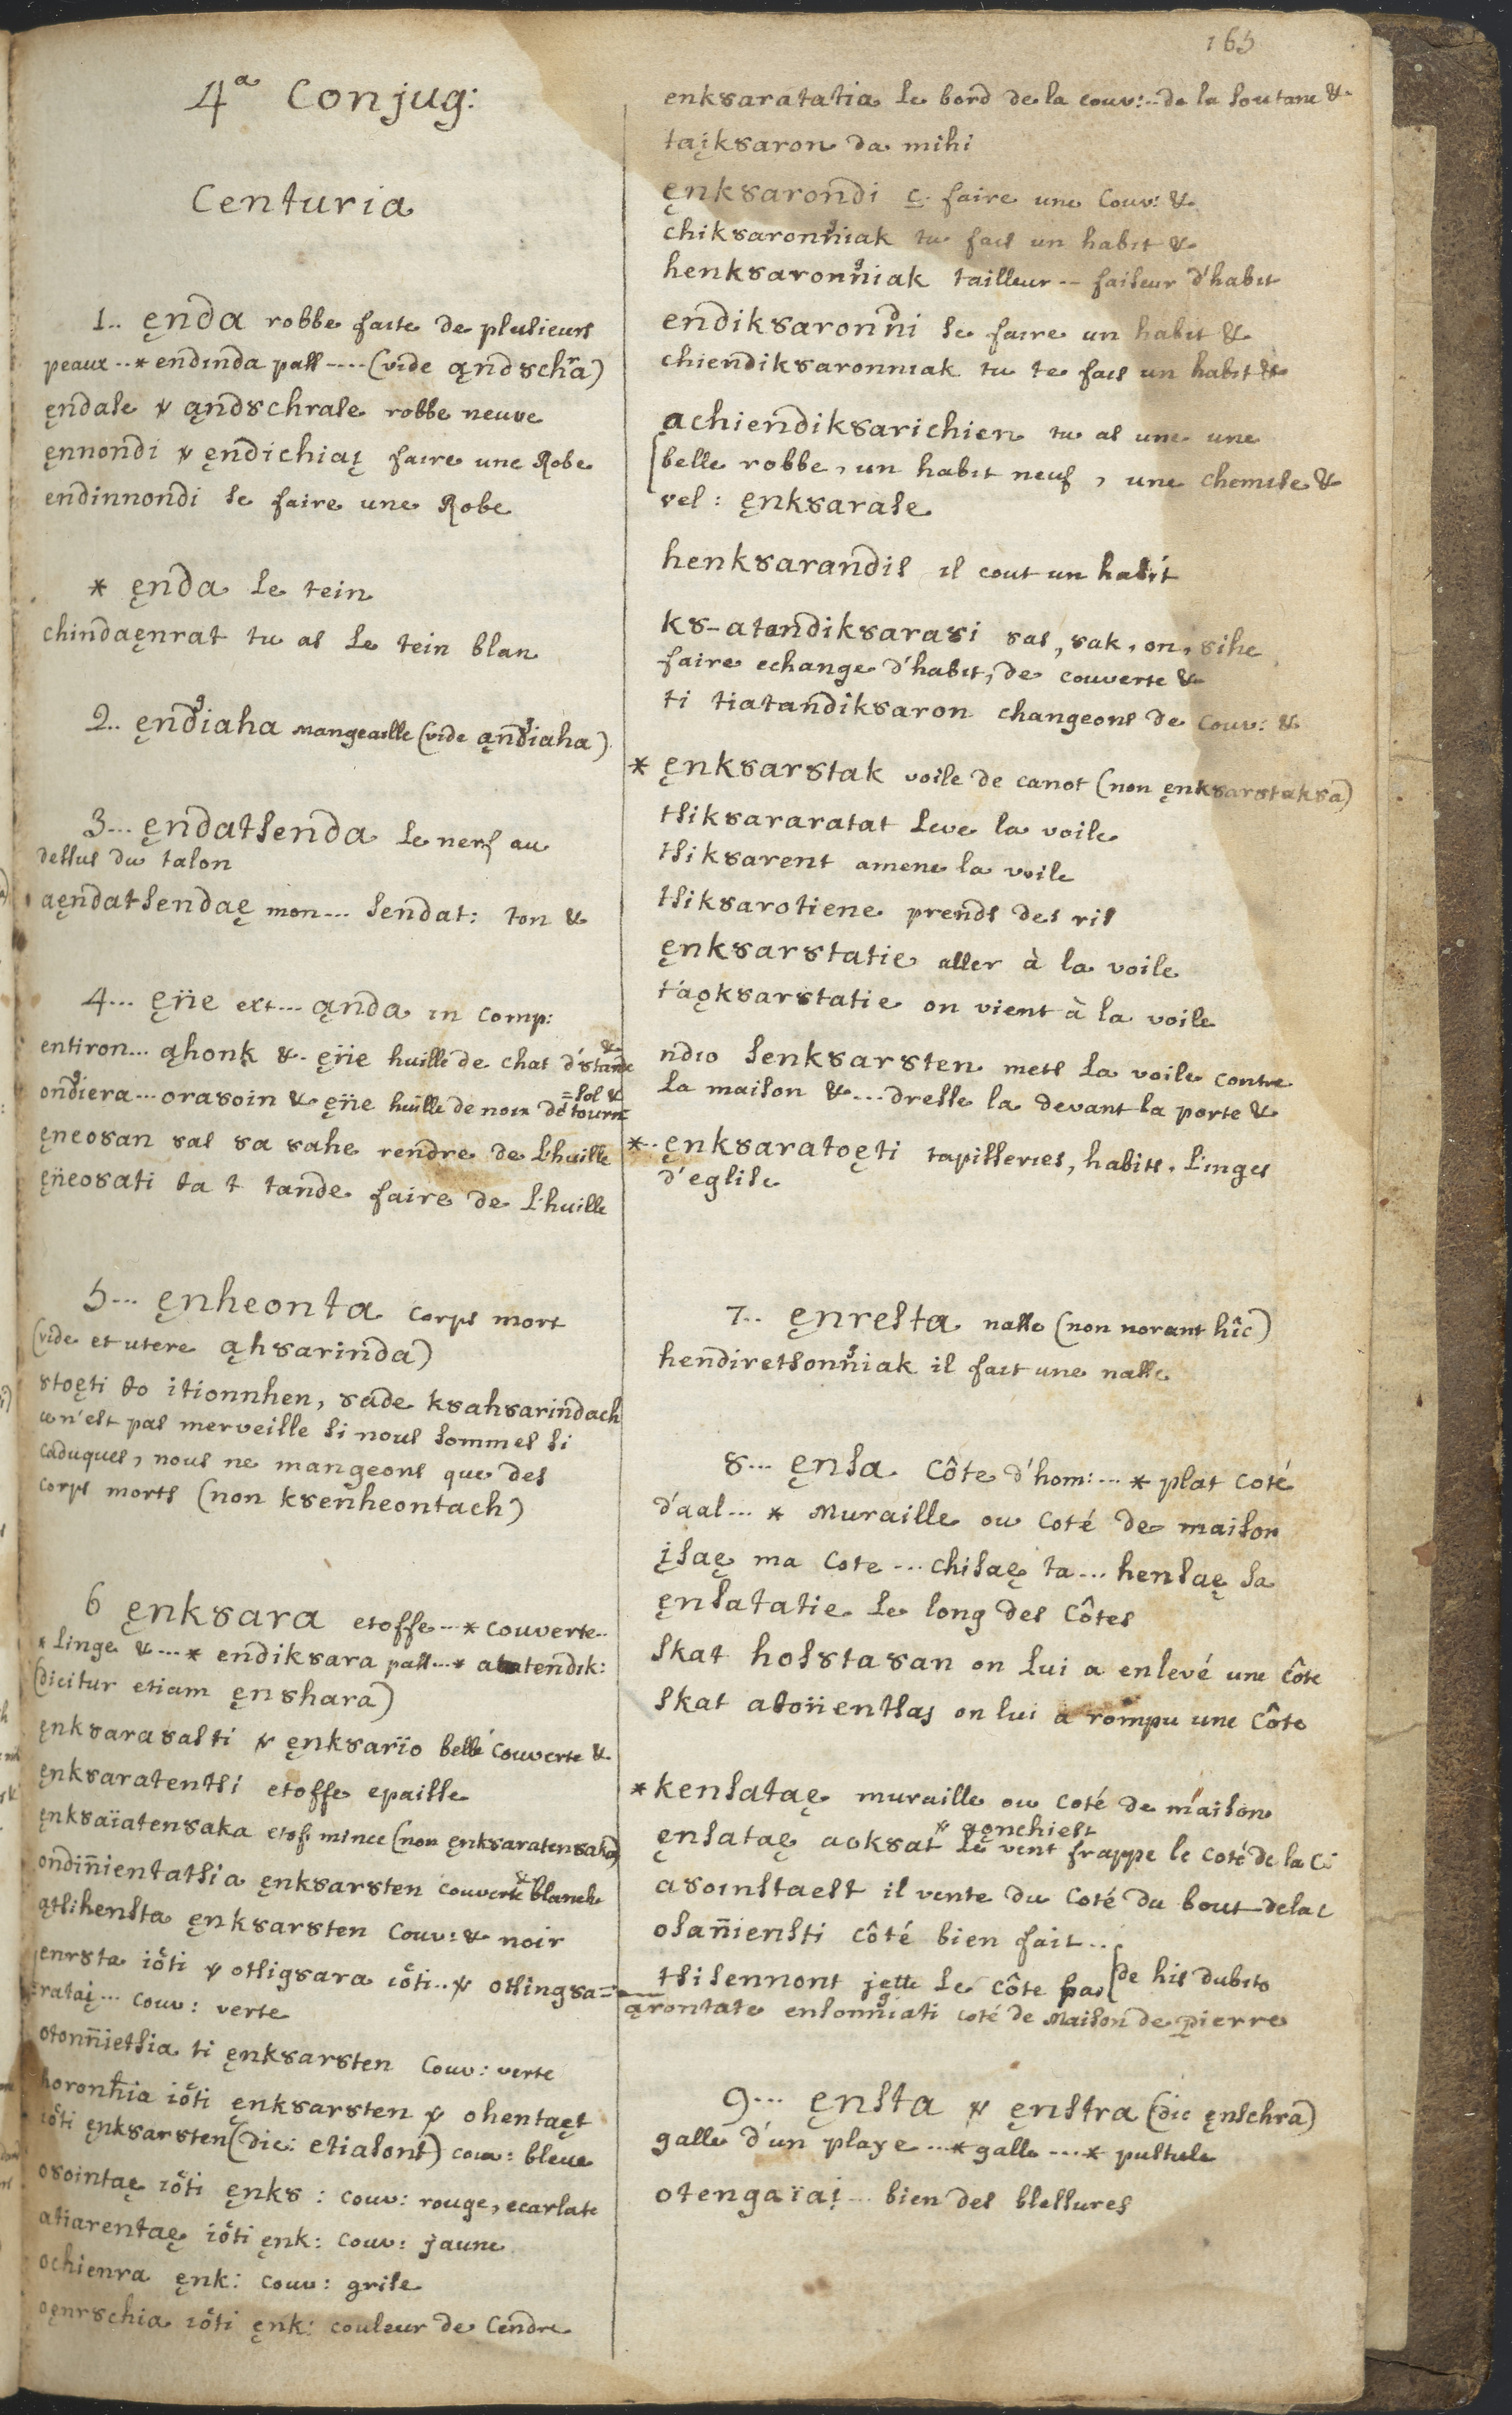 165
4ᵃ Conjug:
Centuria
1.. ęnda robbe faite de plusieurs
peaux .. * endinda pass ---- (vide ąndȣchra)
ęndase v ąndȣchrase robbe neuve
ęnnondi v ęndichiaį faire une Robe
endinnondi se faire une Robe
* ęnda le tein
chindaęnrat tu as le tein blan
2.. ęndiaha mangeaille (vide ąndiaha)
3... ęndatsenda le nerf au
dessus du talon
aęndatsendaę mon... sendat: ton &
4... ęn̈e ext... ąnda in Comp:
entiron... ąhonk & ęn̈e huille de chat
ondiera... oraȣoin & ęn̈e huille de noix
ęneoȣan ȣas ȣa ȣahe rendre de l'huille
ęn̈eoȣati ta t tande faire de l'huille
5... ęnheonta Corps mort
(vide et utere ąhȣarinda)
stoęti to itionnhen, ȣade kȣahȣarindach
ce n'est pas merveille si nous sommes si
caduques, nous ne mangeons que des
corps morts (non kȣenheontach)
6 ęnkȣara etoffe... * couverte..
* linge & ... * endikȣara pass... * atatendik:
(dicitur etiam ęnȣhara)
ęnkȣaraȣasti v ęnkȣarïo belle couverte &
ęnkȣaratentsi etoffe epaisse
ęnkȣaïatenȣaka etof: mince (non ęnkȣaratenȣaka)
ondin̈ientatsia ęnkȣarȣten couverte & blanche
ątsihensta ęnkȣarȣten Couv: & noir
enrȣta ioti v otsigȣara ioti.. v otsingȣa=
=rataį... couv: verte
otonn̈ietsia ti ęnkȣarȣten Couv: verte
horonhia ioti ęnkȣarȣten v ohentaęt
ioti ęnkȣarȣten (dic: etiasont) couv: bleue
oȣointaę ioti ęnkȣ: couv: rouge, ecarlate
atiarentaę ioti ęnk: couv: jaune
ochienra ęnk: couv: grise
oęnrȣchia ioti ęnk: couleur de Cendre
enkȣaratatia le bord de la couv:.. de la soutane &
taįkȣaron da mihi
ęnkȣarondi c. faire une Couv: &
chikȣaronniak tu fais un habit &
henkȣaronniak tailleur -- faiseur d'habit
endikȣaronni se faire un habit &
chiendikȣaronniak tu te fais un habit &
ąchiendikȣarichien tu as une une
belle robbe, un habit neuf, une chemise &
vel: ęnkȣarase
henkȣarandis il cout un habit
kȣ-atandikȣaraȣi ȣas, ȣak, on, ȣihe
faire echange d'habit, de couverte &
ti tiatandikȣaron changeons de couv: &
* ęnkȣarȣtak voile de canot (non ęnkȣarȣtakȣa)
tsikȣararatat leve la voile
tsikȣarent amene la voile
tsikȣarotiene prends des ris
ęnkȣarȣtatie aller à la voile
t'aǫkȣarȣtatie on vient à la voile
ndio senkȣarȣten mets la voile contre
la maison & ... dresse la devant la porte &
*.. ęnkȣaratoęti tapisseries, habits, linges
d'eglise
7.. ęnresta nasse (non norant hîc)
hendiretsonniak il fait une nasse
8... ęnsa Côte d'hom:... * plat coté
d'aal... * Muraille ou Coté de maison
įsaę ma Cote... chisaę ta... hensaę sa
ęnsatatie le long des Côtes
skat hosȣtaȣan on lui a enlevé une Côte
skat aton̈entsas on lui a rompu une Côte
* kensataę muraille ou coté de maison
v aǫnchiest
ęnsataę aokȣat le vent frappe le coté de la C
aȣoinstaest il vente du Coté du bout de la c
osan̈iensti côté bien fait..
tsisennont jette le Côte pas [de his dubito
ąrontate ensonniati coté de Maison de pierre
9... ęnsta v ęnstra (dic ęnschra)
galle d'un playe... * galle... * pustule
otengaïaį... bien des blessures